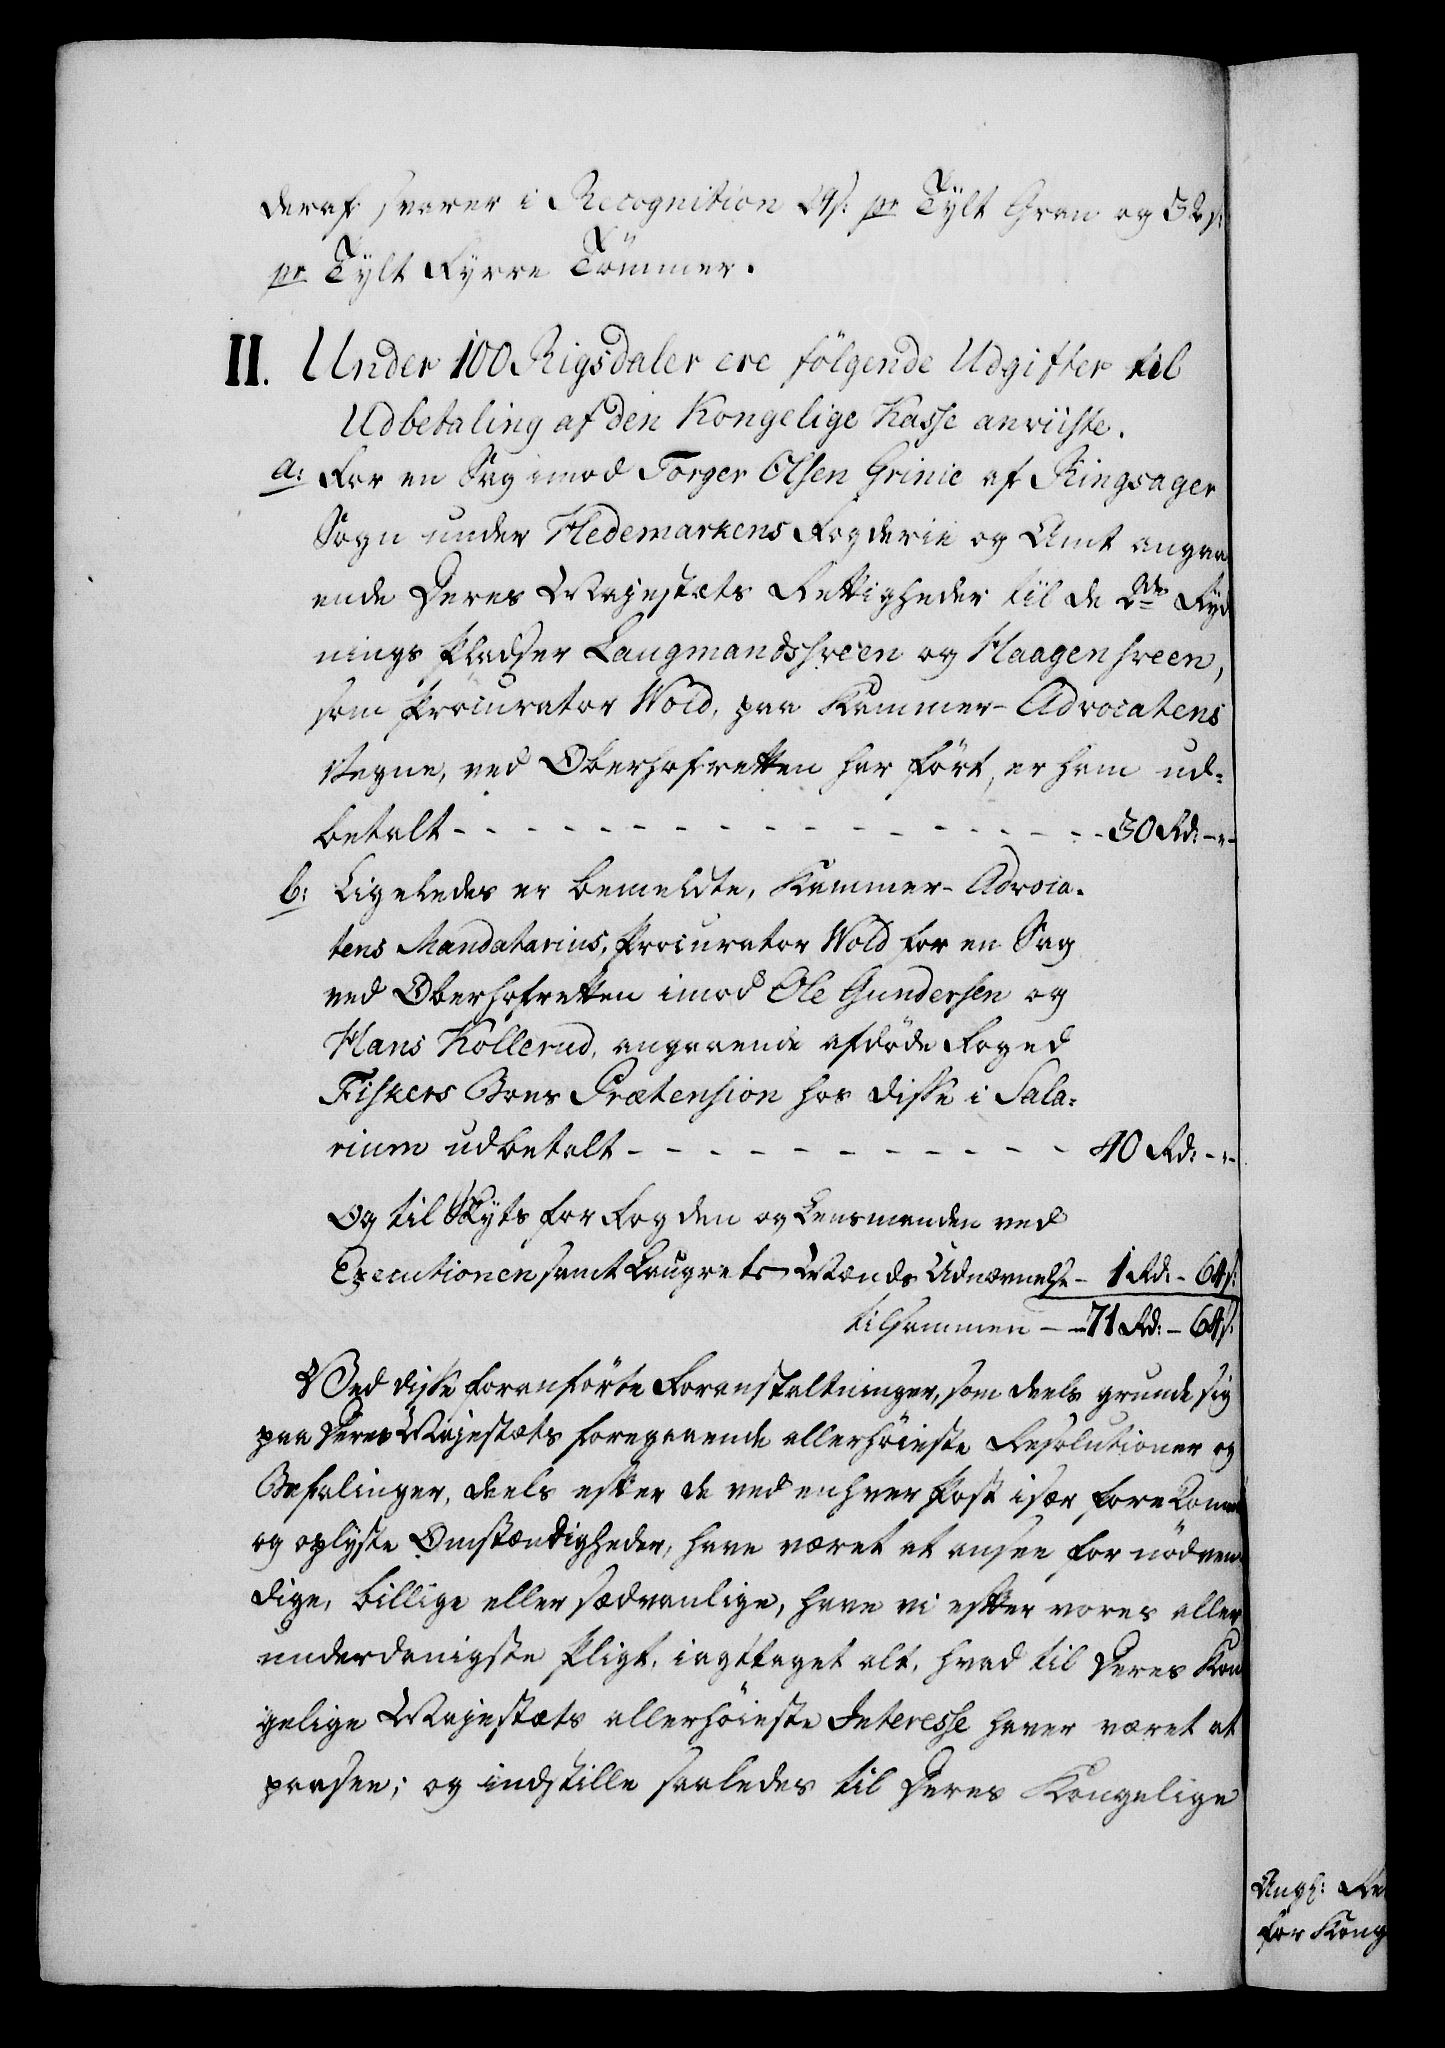 deraf svarer i Recognition 24 s: pr Tylt Gran og 32 s:
pr Tylt Fyrre Tömmer.
II. Under 100 Rigsdaler ere fölgende Udgifter til
Udbetaling af den Kongelige Kasse anviiste.
a: For en Sag imod Torger Olsen Grinie af Ringsager
Sogn under Hedemarkens Fogderie og Amt angaa
ende Deres Majestæts Rettigheder til de 2de Ryd
nings Pladser Laugmandshreen og Haagenhreen,
som Procurator Wold, paa Kammer-Advocatens
Vegne, ved Oberhofretten har fört, er ham ud-
betalt - - - 30 Rd: - „ -
b: Ligeledes er bemeldte, Kammer-Advoca-
tens Mandatarius, Procurator Wold for en Sag
ved Oberhofretten imod Ole Gundersen og
Hans Kollerud, angaaende afdöde Foged
Fiskers Boes Prætension hos disse i Sala-
rium udbetalt - - - 40 Rd: - „ -
Og til Skyts for Fogden og Lensmanden ved
Executionen samt Laugrets Mænds Udnævnelse - 1 Rd: - 64 s:
tilsammen - - 71 Rd: - 64 s:
Ved disse foranförte Foranstaltninger, som deels grunde sig
paa Deres Majestæts foregaaende allerhöieste Resolutioner og
Befalinger, deels efter de ved enhver Post især forekomne
og oplyste Omstændigheder, have været at ansee for nödven
dige, billige eller sædvanlige, have vi efter vores aller
underdanigste Pligt, iagttaget alt, hvad til Deres Kon
gelige Majestæts allerhöieste Interesse haver været at
paasee; og indstille saaledes til Deres Kongelige
Angl: Re
for Kong